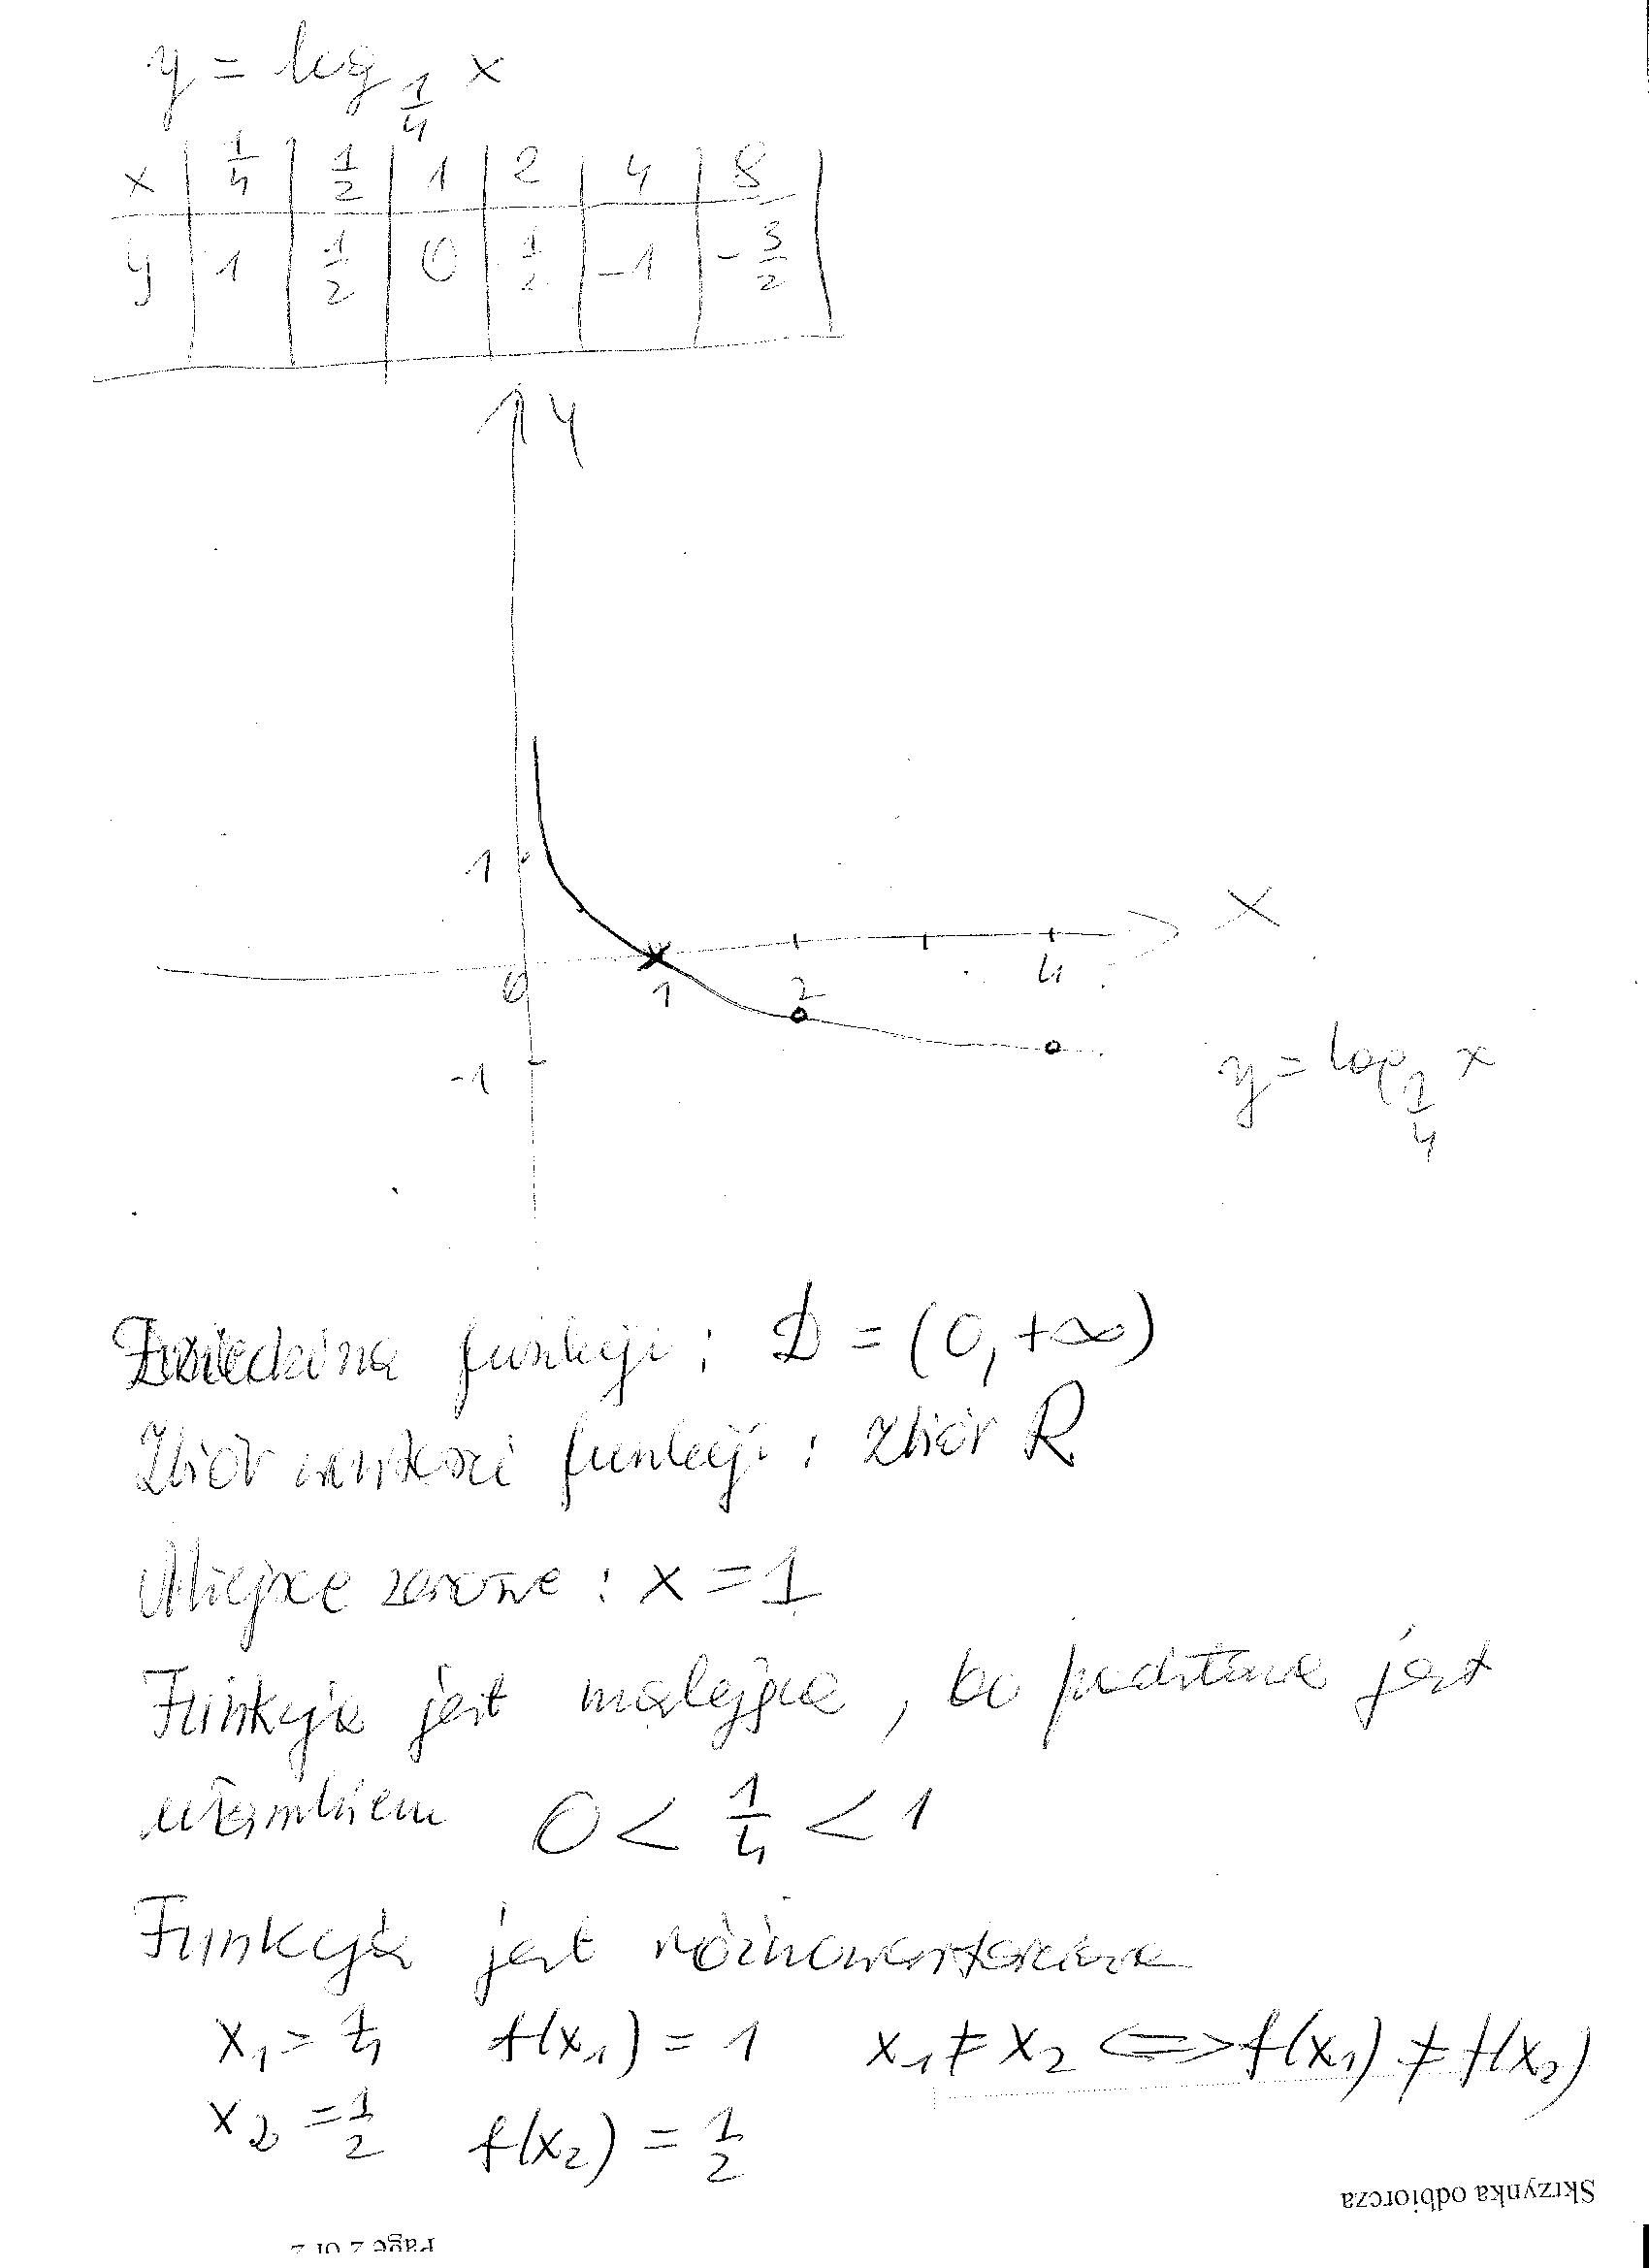 y = log 1/4 x
x | 1/4 | 1/2 | 1 | 2 | 4 | 8
y | 1 | 1/2 | 0 | -1/2 | -1 | -3/2
Y
1
X
0 1 2 4
-1
y = log 1/4 x
Dziedzina funkcji : D = (0, +∞)
Zbiór wartości funkcji : zbiór R
Miejsce zerowe : x = 1
Funkcja jest malejąca , bo podstawa jest
ułamkiem 0 < 1/4 < 1
Funkcja jest różnowartościowa
x₁ = 1/4 f(x₁) = 1 x₁ ≠ x₂ ⟺ f(x₁) ≠ f(x₂)
x₂ = 1/2 f(x₂) = 1/2
Skrzynka odbiorcza
Page 2 of 2